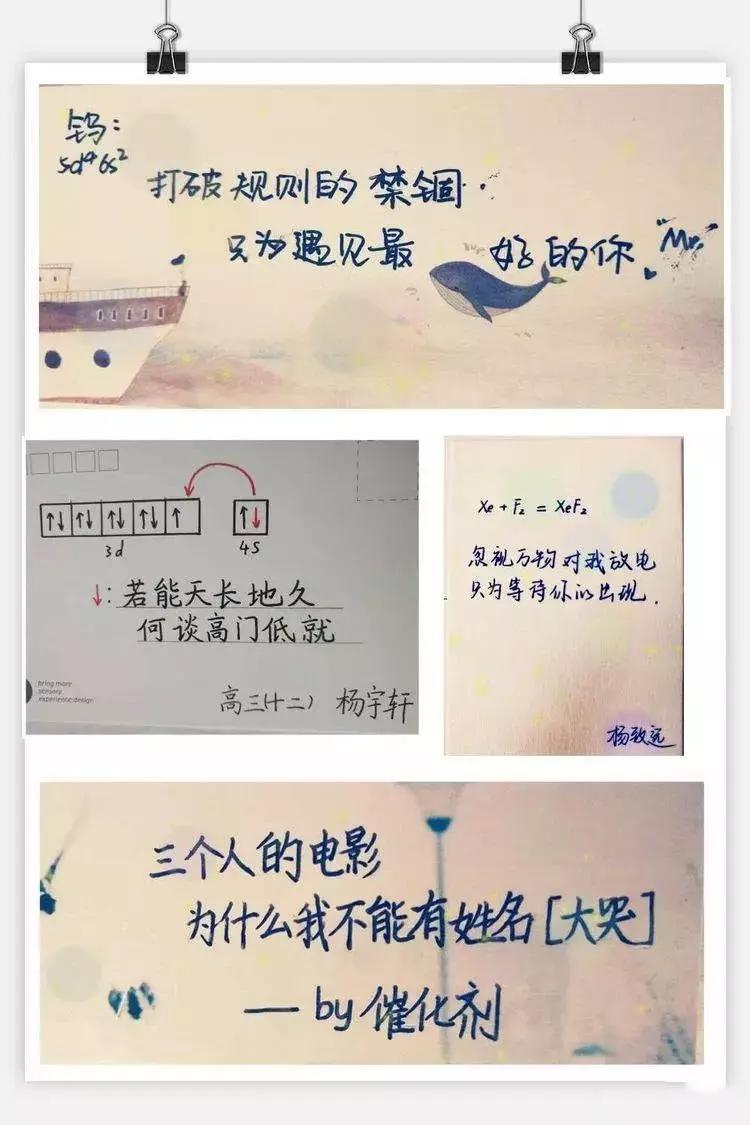 钨:
5d⁴6s²
打破规则的禁锢.
只为遇见最 好的你 "Mr."
↑↓ ↑↓ ↑↓ ↑↓ ↑ ↑↓
3d 4S
↓: 若能天长地久
何谈高门低就
bring more
sensory
experience design
高三(十二) 杨宇轩
Xe + F₂ = XeF₂
忽视万物对我放电
只为等待你的出现.
杨致远
三个人的电影
为什么我不能有姓名[大哭]
—by 催化剂